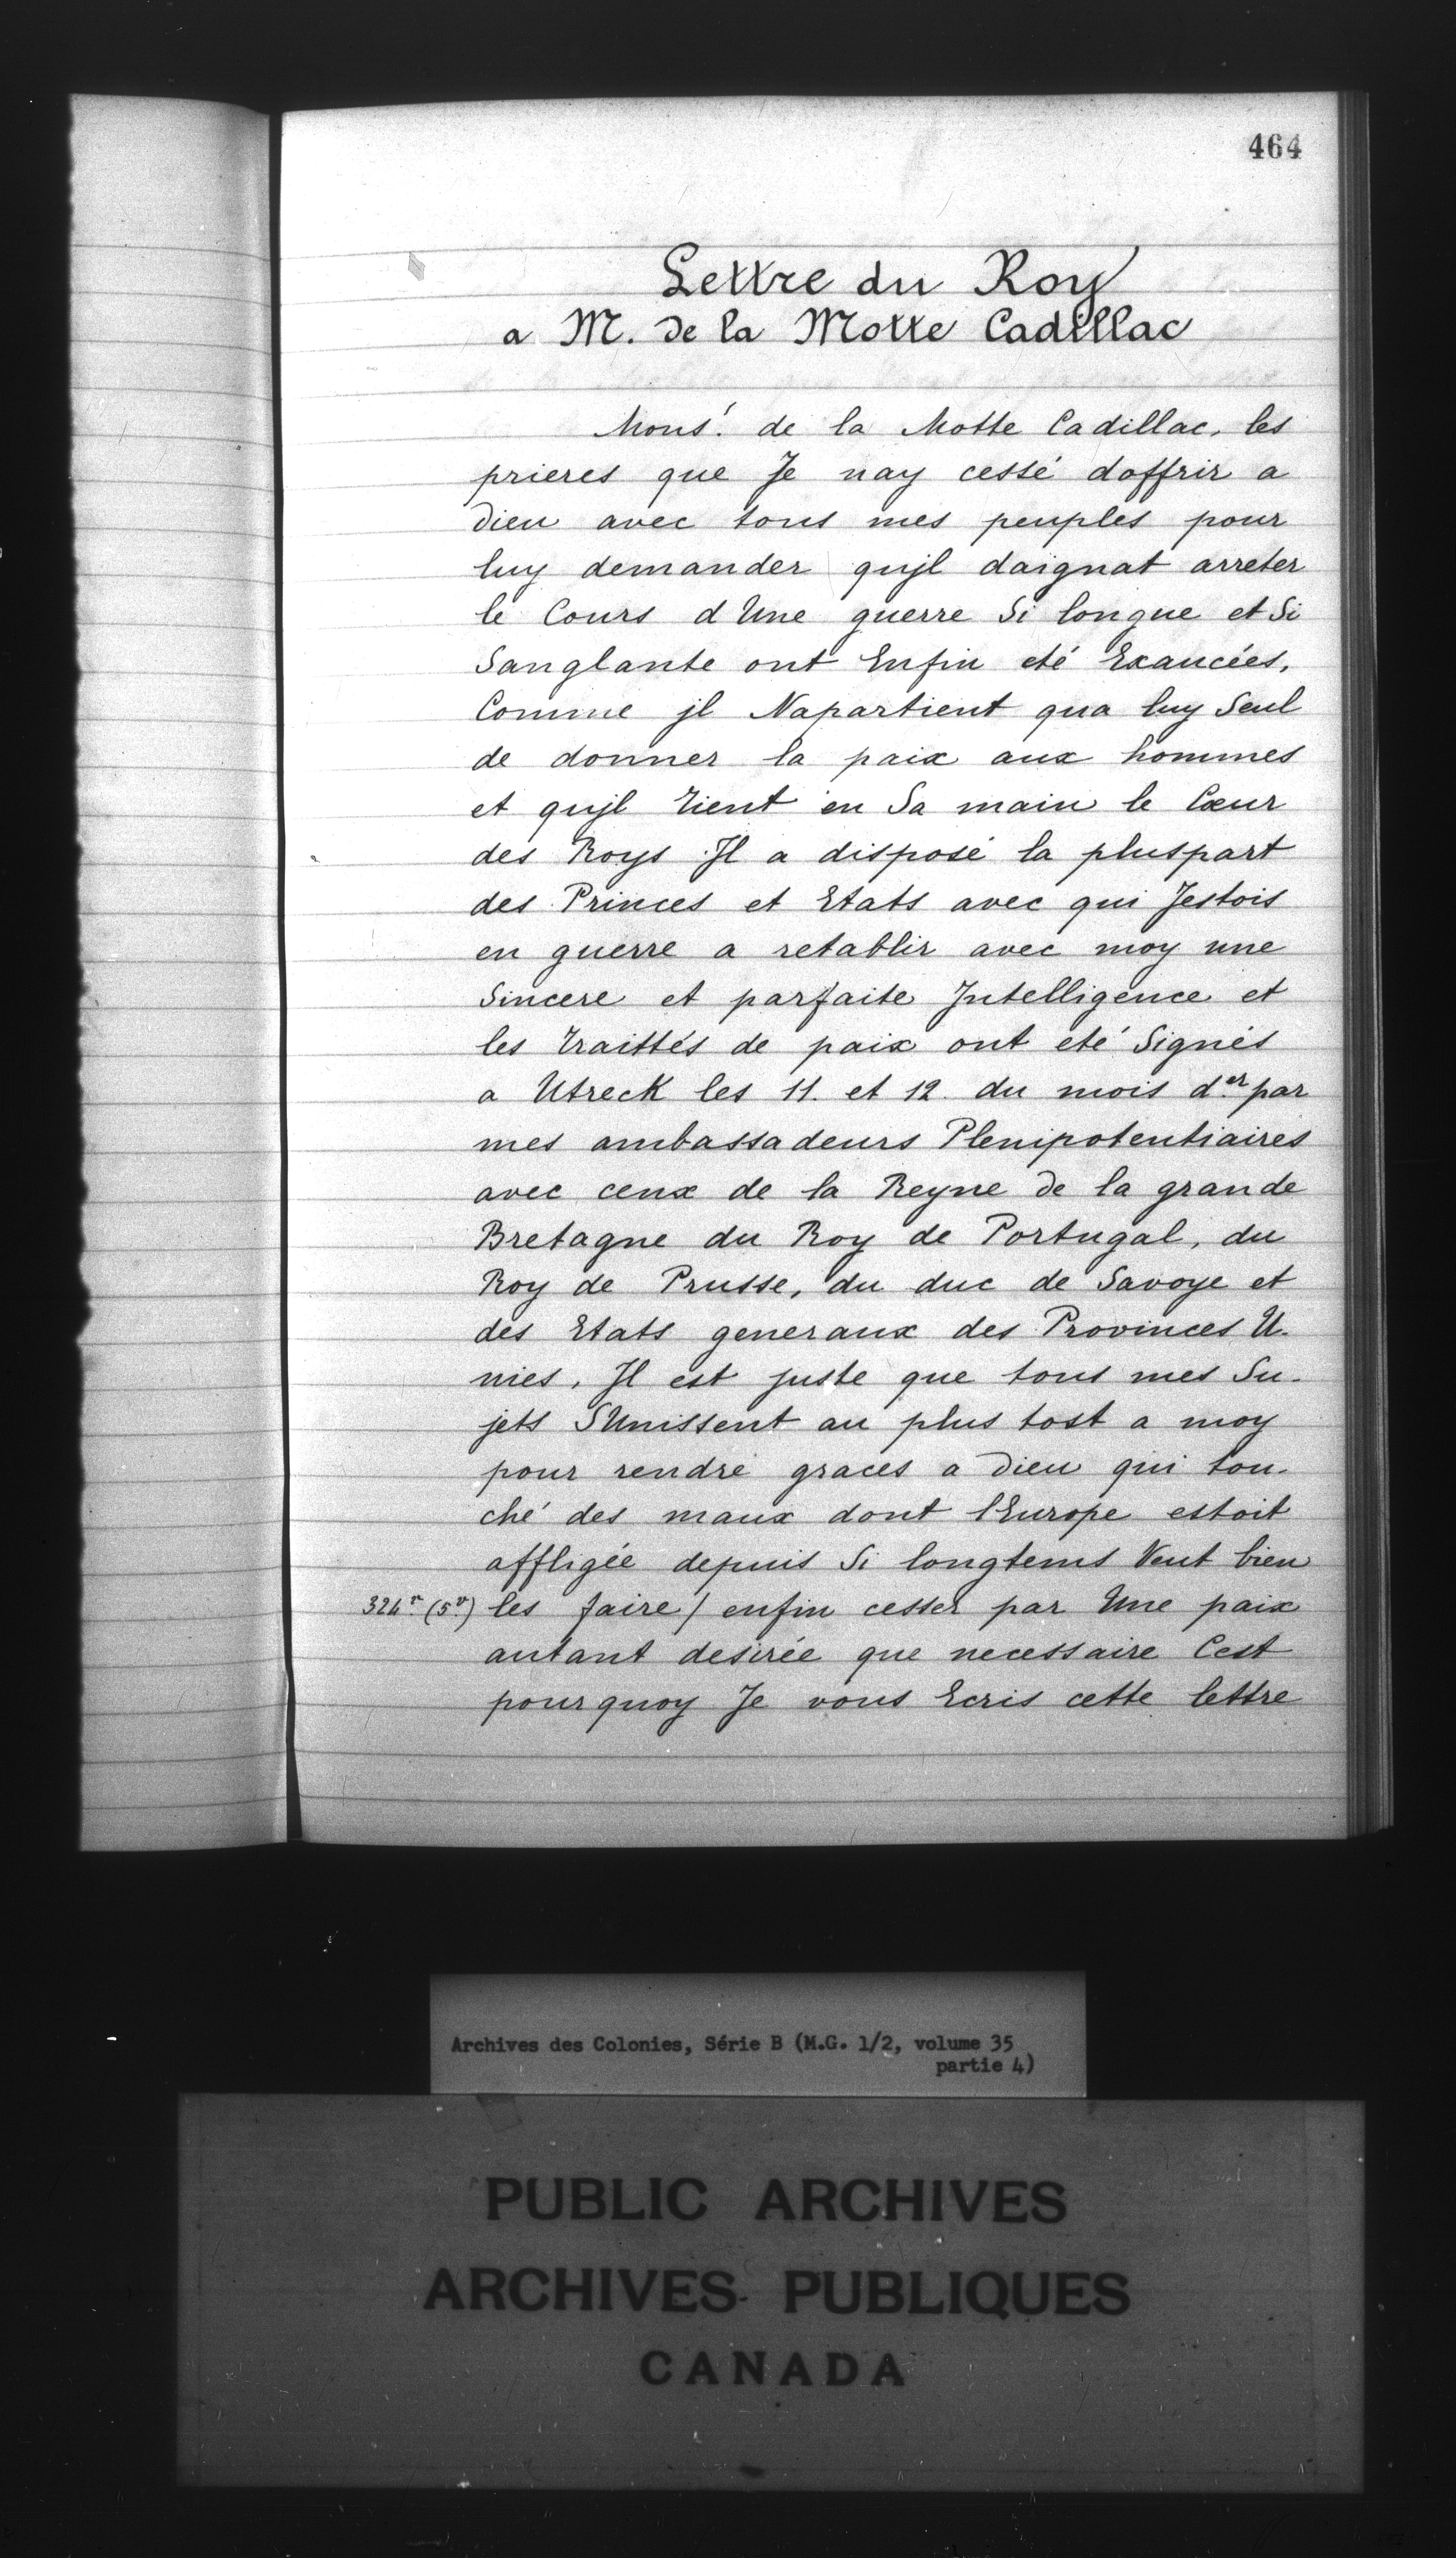 464
Lettre du Roy
a M. de la Motte Cadillac
Mons.r de la Motte Cadillac, les
prieres que Je nay cessé doffrir a
Dieu avec tous mes peuples pour
luy demander qujl daignat arreter
le Cours d Une guerre Si longue et Si
Sanglante ont Enfin eté Exaucées,
Comme jl Napartient qua luy Seul
de donner la paix aux hommes
et qujl tient en Sa main le Cœur
des Roys Jl a disposé la pluspart
des Princes et Etats avec qui Jestois
en guerre a retablir avec moy une
Sincere et parfaite Jntelligence et
les traittés de paix ont eté Signés
a Utreck les 11. et 12. du mois d.er par
mes ambassadeurs Plenipotentiaires
avec ceux de la Reyne de la grande
Bretagne du Roy de Portugal, du
Roy de Prusse, du duc de Savoye et
des Etats generaux des Provinces U-
nies, Jl est juste que tous mes Su-
jets SUnissent au plus tost a moy
pour rendre graces a Dieu qui tou-
ché des maux dont lEurope estoit
affligée depuis Si longtems Veut bien
324.v (5.v) les faire / enfin cesser par Une paix
autant desirée que necessaire Cest
pourquoy Je vous Ecris cette lettre
Archives des Colonies, Série B (M.G. 1/2, volume 35
partie 4)
PUBLIC ARCHIVES
ARCHIVES PUBLIQUES
CANADA